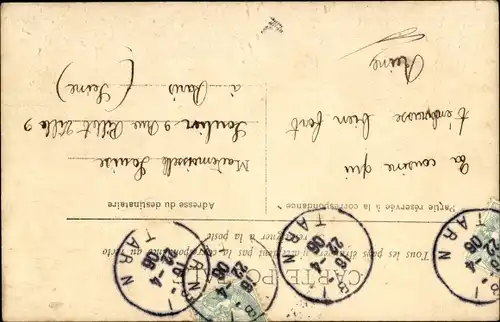 CARTE POSTALE
(Tous les pays étrangers n'acceptent pas la correspondance au recto
se renseigner à la poste)
Partie réservée à la correspondance
Ta cousine qui
t'embrasse bien fort
Reine
Adresse du destinataire
Mademoiselle Louise
9 Rue
à Paris
(Seine)
16
22-4
06
TARN
16
22-4
06
TARN
16
22-4
06
TARN